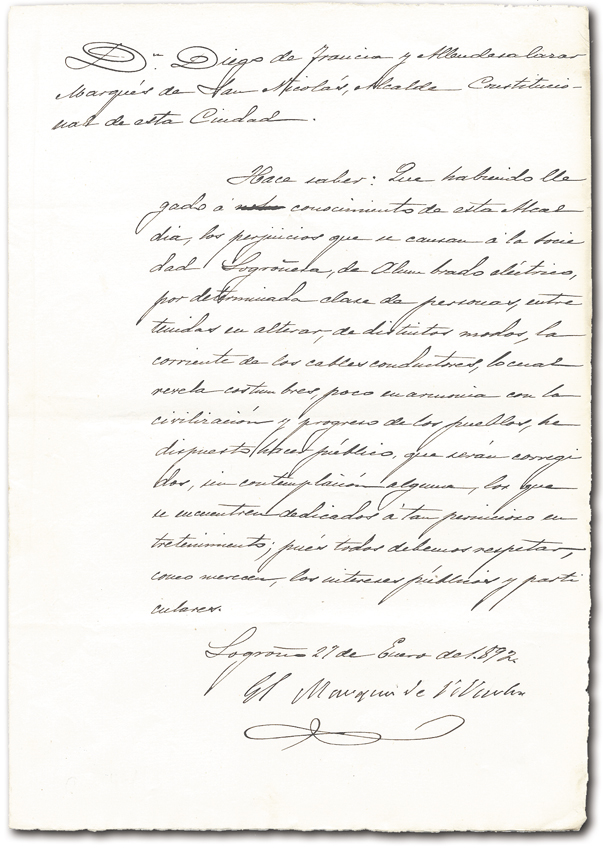 Dn. Diego de Francia y Allendesalazar
Marqués de San Nicolás, Alcalde Constitucio-
nal de esta Ciudad.
Hace saber: Que habiendo lle
gado á conocimiento de esta Alcal
dia, los perjuicios que se causan á la socie
dad Logroñesa, de Alumbrado eléctrico,
por determinada clase de personas, entre
tenidas en alterar, de distintos modos, la
corriente de los cables conductores, lo cual
revela costumbres, poco en armonia con la
civilización y progreso de los pueblos, he
dispuesto hacer público, que serán corregi
dos, sin contemplación alguna, los que
se encuentren dedicados á tan pernicioso en
tretenimiento; pués todos debemos respetar,
como merecen, los intereses públicos y parti
culares.
Logroño 27 de Enero de 1.892.
El Marqués de S. Nicolás